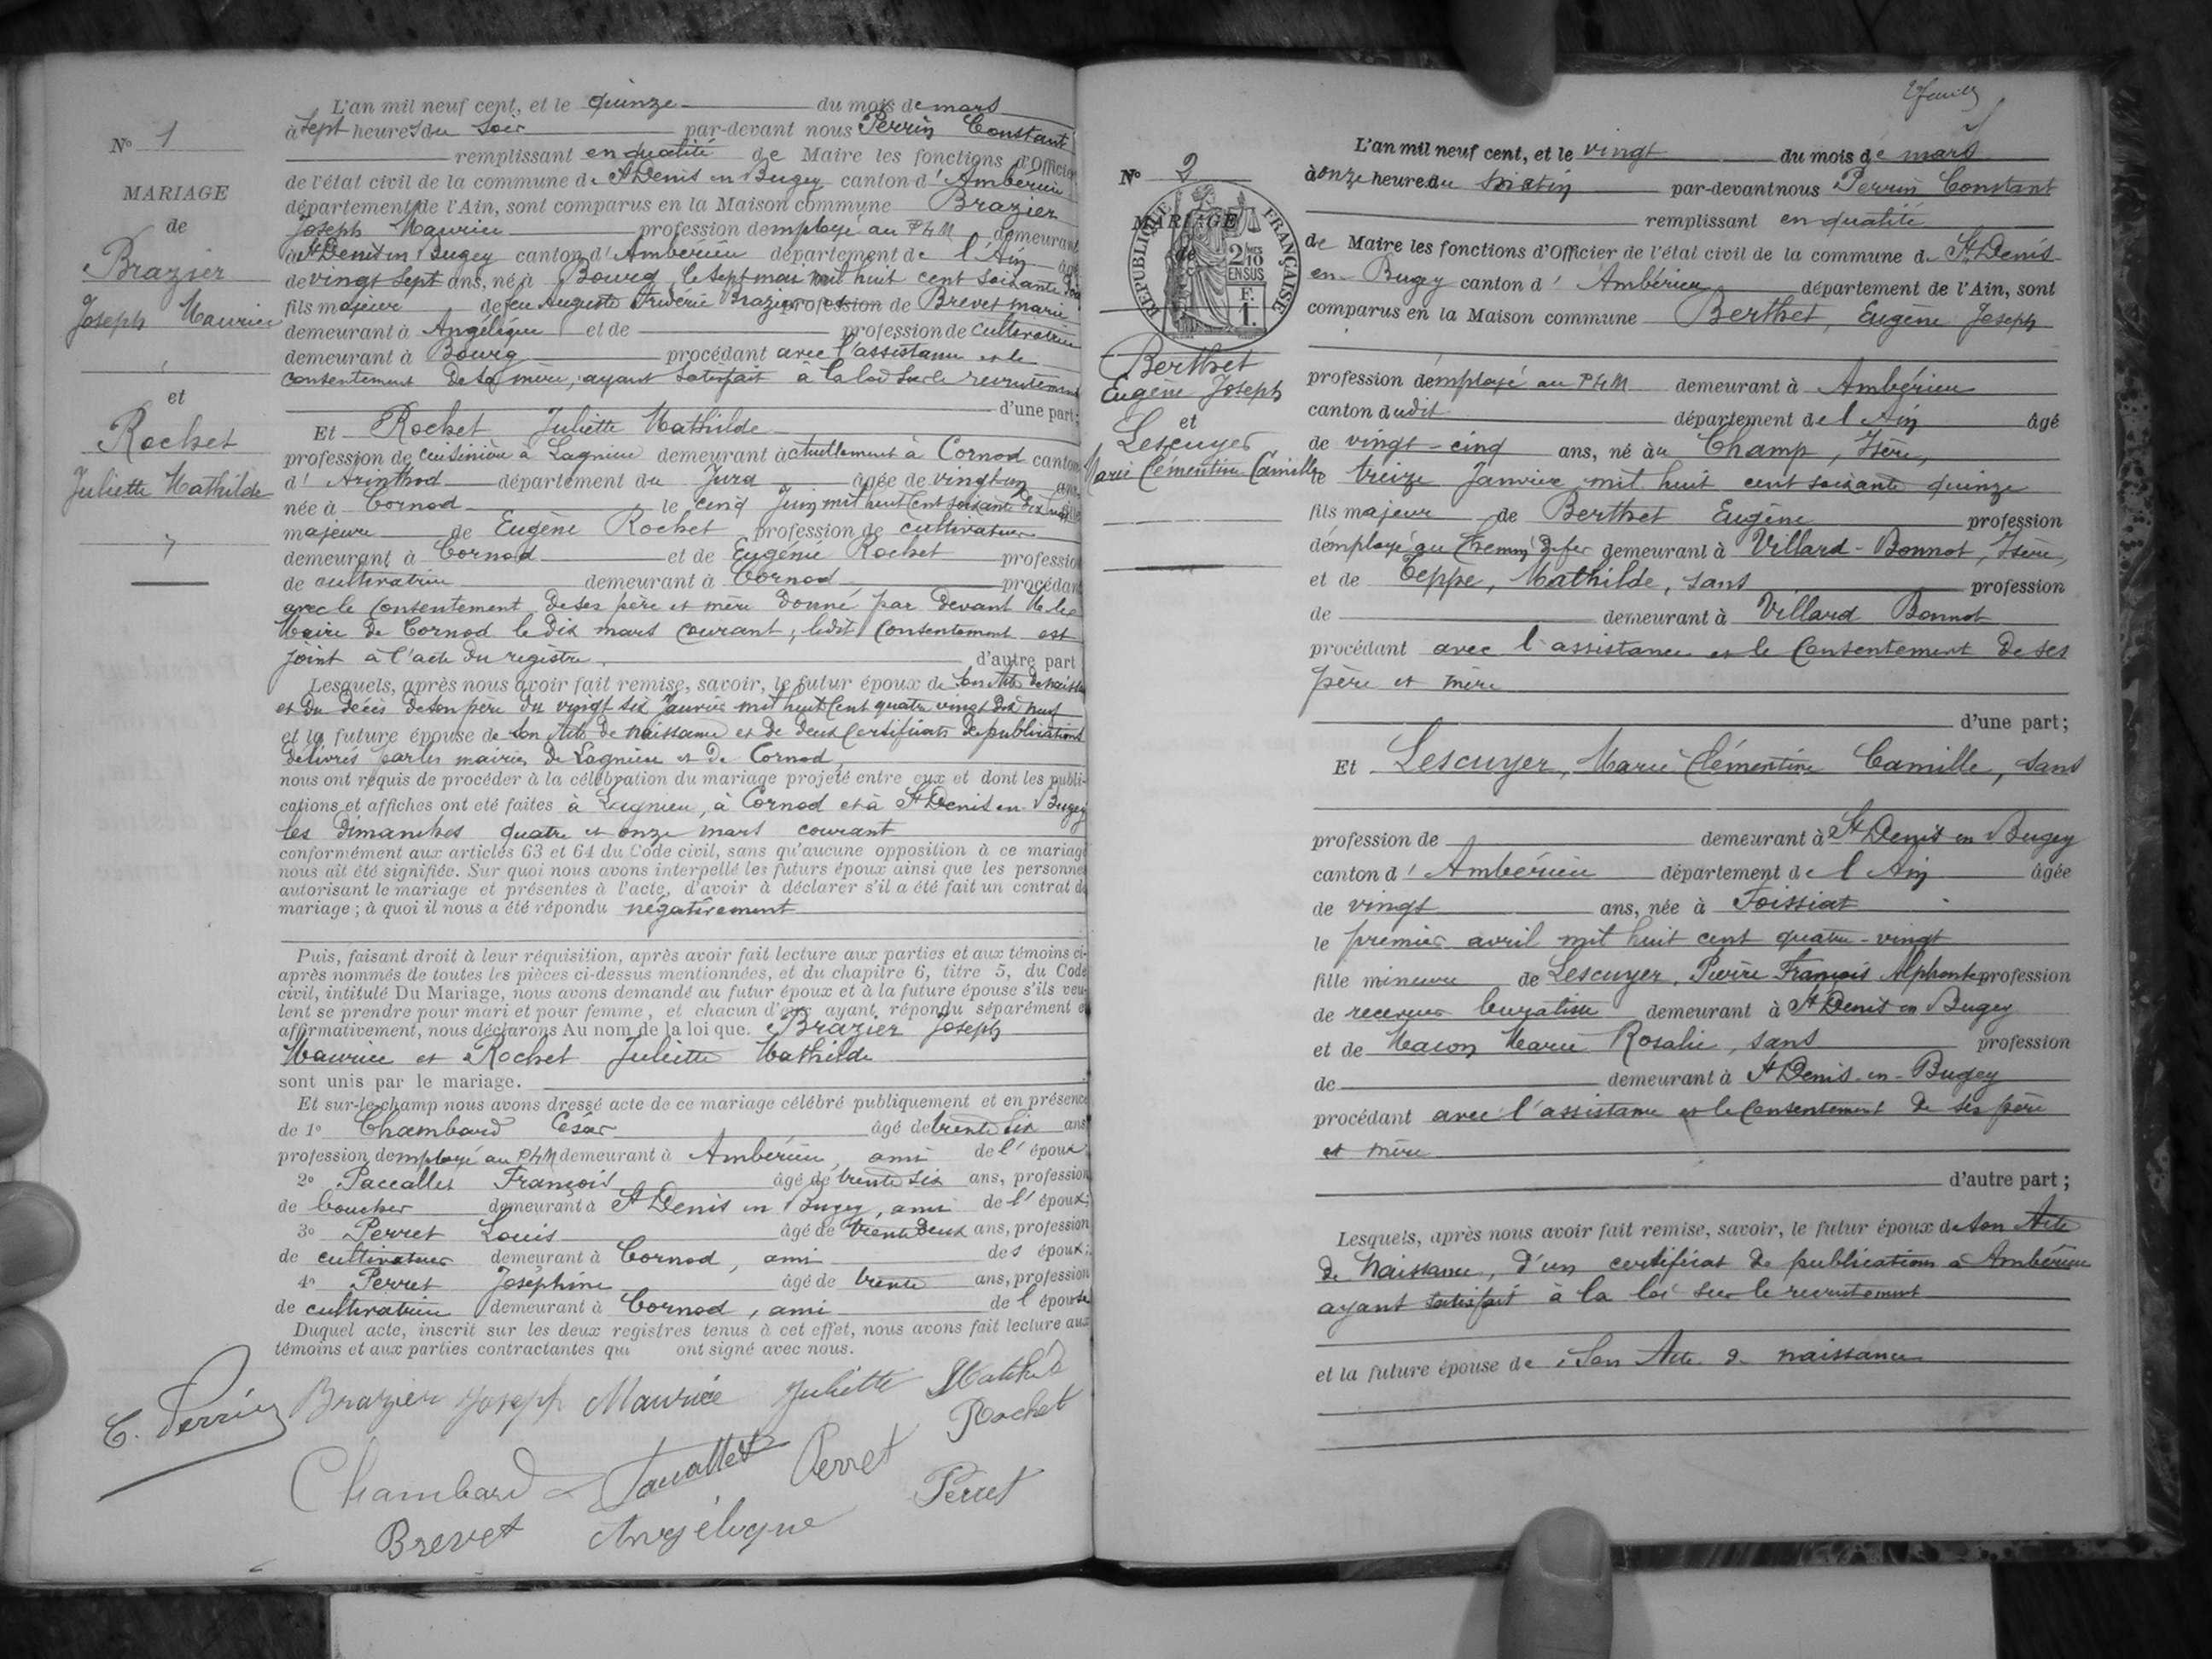 N° 1
MARIAGE
de
Brazier
Joseph Maurice
et
Rochet
Juliette Mathilde
L'an mil neuf cent, et le quinze du mois de mars
à sept heures du soir par-devant nous Perrin Constant
remplissant en qualité de Maire les fonctions d'Officier
de l'état civil de la commune de St Denis en Bugey canton d'Ambérieu
département de l'Ain, sont comparus en la Maison commune Brazier
Joseph Maurice profession d'employé au PLM demeurant
à St Denis en Bugey canton d'Ambérieu département de l'Ain âgé
de vingt sept ans, né à Bourg, le sept mai mil huit cent soixante
fils majeur de feu Auguste Frédéric Brazier profession de Brevet marie
demeurant à Angélique et de profession de cultivatrice
demeurant à Bourg procédant avec l'assistance et le
consentement de sa mère, ayant satisfait à la loi sur le recrutement
d'une part;
Et Rochet Juliette Mathilde
profession de cuisinière à Lagnieu demeurant actuellement à Cornod canton
d'Arinthod département du Jura âgée de vingt un ans,
née à Cornod le cinq Juin mil huit cent soixante dix huit fille
majeure de Eugène Rochet profession de cultivateur
demeurant à Cornod et de Eugénie Rochet profession
de cultivatrice demeurant à Cornod procédant
avec le consentement de ses père et mère donné par devant M le
Maire de Cornod le dix mars courant, ledit consentement est
joint à l'acte du registre. d'autre part
Lesquels, après nous avoir fait remise, savoir, le futur époux de son Acte de naissance
et du décès de son père du vingt six Janvier mil huit cent quatre vingt dix neuf
et la future épouse de son Acte de naissance et de deux certificats de publications
délivrés par les mairies de Lagnieu et de Cornod,
nous ont requis de procéder à la célébration du mariage projeté entre eux et dont les publi-
cations et affiches ont été faites à Lagnieu, à Cornod et à St Denis en Bugey
les dimanches quatre et onze mars courant
conformément aux articles 63 et 64 du Code civil, sans qu'aucune opposition à ce mariage
nous ait été signifiée. Sur quoi nous avons interpellé les futurs époux ainsi que les personnes
autorisant le mariage et présentes à l'acte, d'avoir à déclarer s'il a été fait un contrat de
mariage; à quoi il nous a été répondu négativement
Puis, faisant droit à leur réquisition, après avoir fait lecture aux parties et aux témoins ci-
après nommés de toutes les pièces ci-dessus mentionnées, et du chapitre 6, titre 5, du Code
civil, intitulé Du Mariage, nous avons demandé au futur époux et à la future épouse s'ils veu-
lent se prendre pour mari et pour femme, et chacun d'eux ayant répondu séparément et
affirmativement, nous déclarons Au nom de la loi que. Brazier Joseph
Maurice et Rochet Juliette Mathilde
sont unis par le mariage.
Et sur-le-champ nous avons dressé acte de ce mariage célébré publiquement et en présence
de 1° Chambard César âgé de trente six ans
profession d'employé au PLM demeurant à Ambérieu, ami de l'époux;
2° Paccallet François âgé de trente six ans, profession
de boucher demeurant à St Denis en Bugey, ami de l'époux;
3° Perret Louis âgé de trente deux ans, profession
de cultivateur demeurant à Cornod, ami des époux;
4° Perret Joséphine âgé de trente ans, profession
de cultivatrice demeurant à Cornod, ami de l'épouse
Duquel acte, inscrit sur les deux registres tenus à cet effet, nous avons fait lecture aux
témoins et aux parties contractantes qui ont signé avec nous.
C. Perrin Brazier Joseph Maurice Juliette Mathilde
Rochet
Chambard Paccallet Perret Perret
Brevet Angélique
N° 2
MARIAGE
de
RÉPUBLIQUE FRANÇAISE
2/10 EN SUS
F. 1.
Berthet
Eugène Joseph
et
Lescuyer
Marie Clémentine Camille
L'an mil neuf cent, et le vingt du mois de mars
à onze heure du matin par-devant nous Perrin Constant
remplissant en qualité
de Maire les fonctions d'Officier de l'état civil de la commune de St Denis
en Bugey canton d'Ambérieu département de l'Ain, sont
comparus en la Maison commune Berthet, Eugène Joseph
profession d'employé au PLM demeurant à Ambérieu
canton dudit département de l'Ain âgé
de vingt-cinq ans, né à u Champ, Isère,
le treize Janvier mil huit cent soixante quinze
fils majeur de Berthet Eugène profession
d'employé au Chemin de fer demeurant à Villard-Bonnot, Isère,
et de Teppe, Mathilde, sans profession
de demeurant à Villard Bonnot
procédant avec l'assistance et le consentement de ses
père et mère
d'une part;
Et Lescuyer, Marie Clémentine Camille, sans
profession de demeurant à St Denis en Bugey
canton d'Ambérieu département de l'Ain âgée
de vingt ans, née à Foissiat
le premier avril mil huit cent quatre-vingt
fille mineure de Lescuyer, Pierre François Alphonse profession
de receveur buraliste demeurant à St Denis en Bugey
et de Macon Marie Rosalie, sans profession
de demeurant à St Denis-en-Bugey
procédant avec l'assistance et le consentement de ses père
et mère
d'autre part;
Lesquels, après nous avoir fait remise, savoir, le futur époux de son Acte
de Naissance, d'un certificat de publications à Ambérieu
ayant satisfait à la loi sur le recrutement
et la future épouse de son Acte de naissance